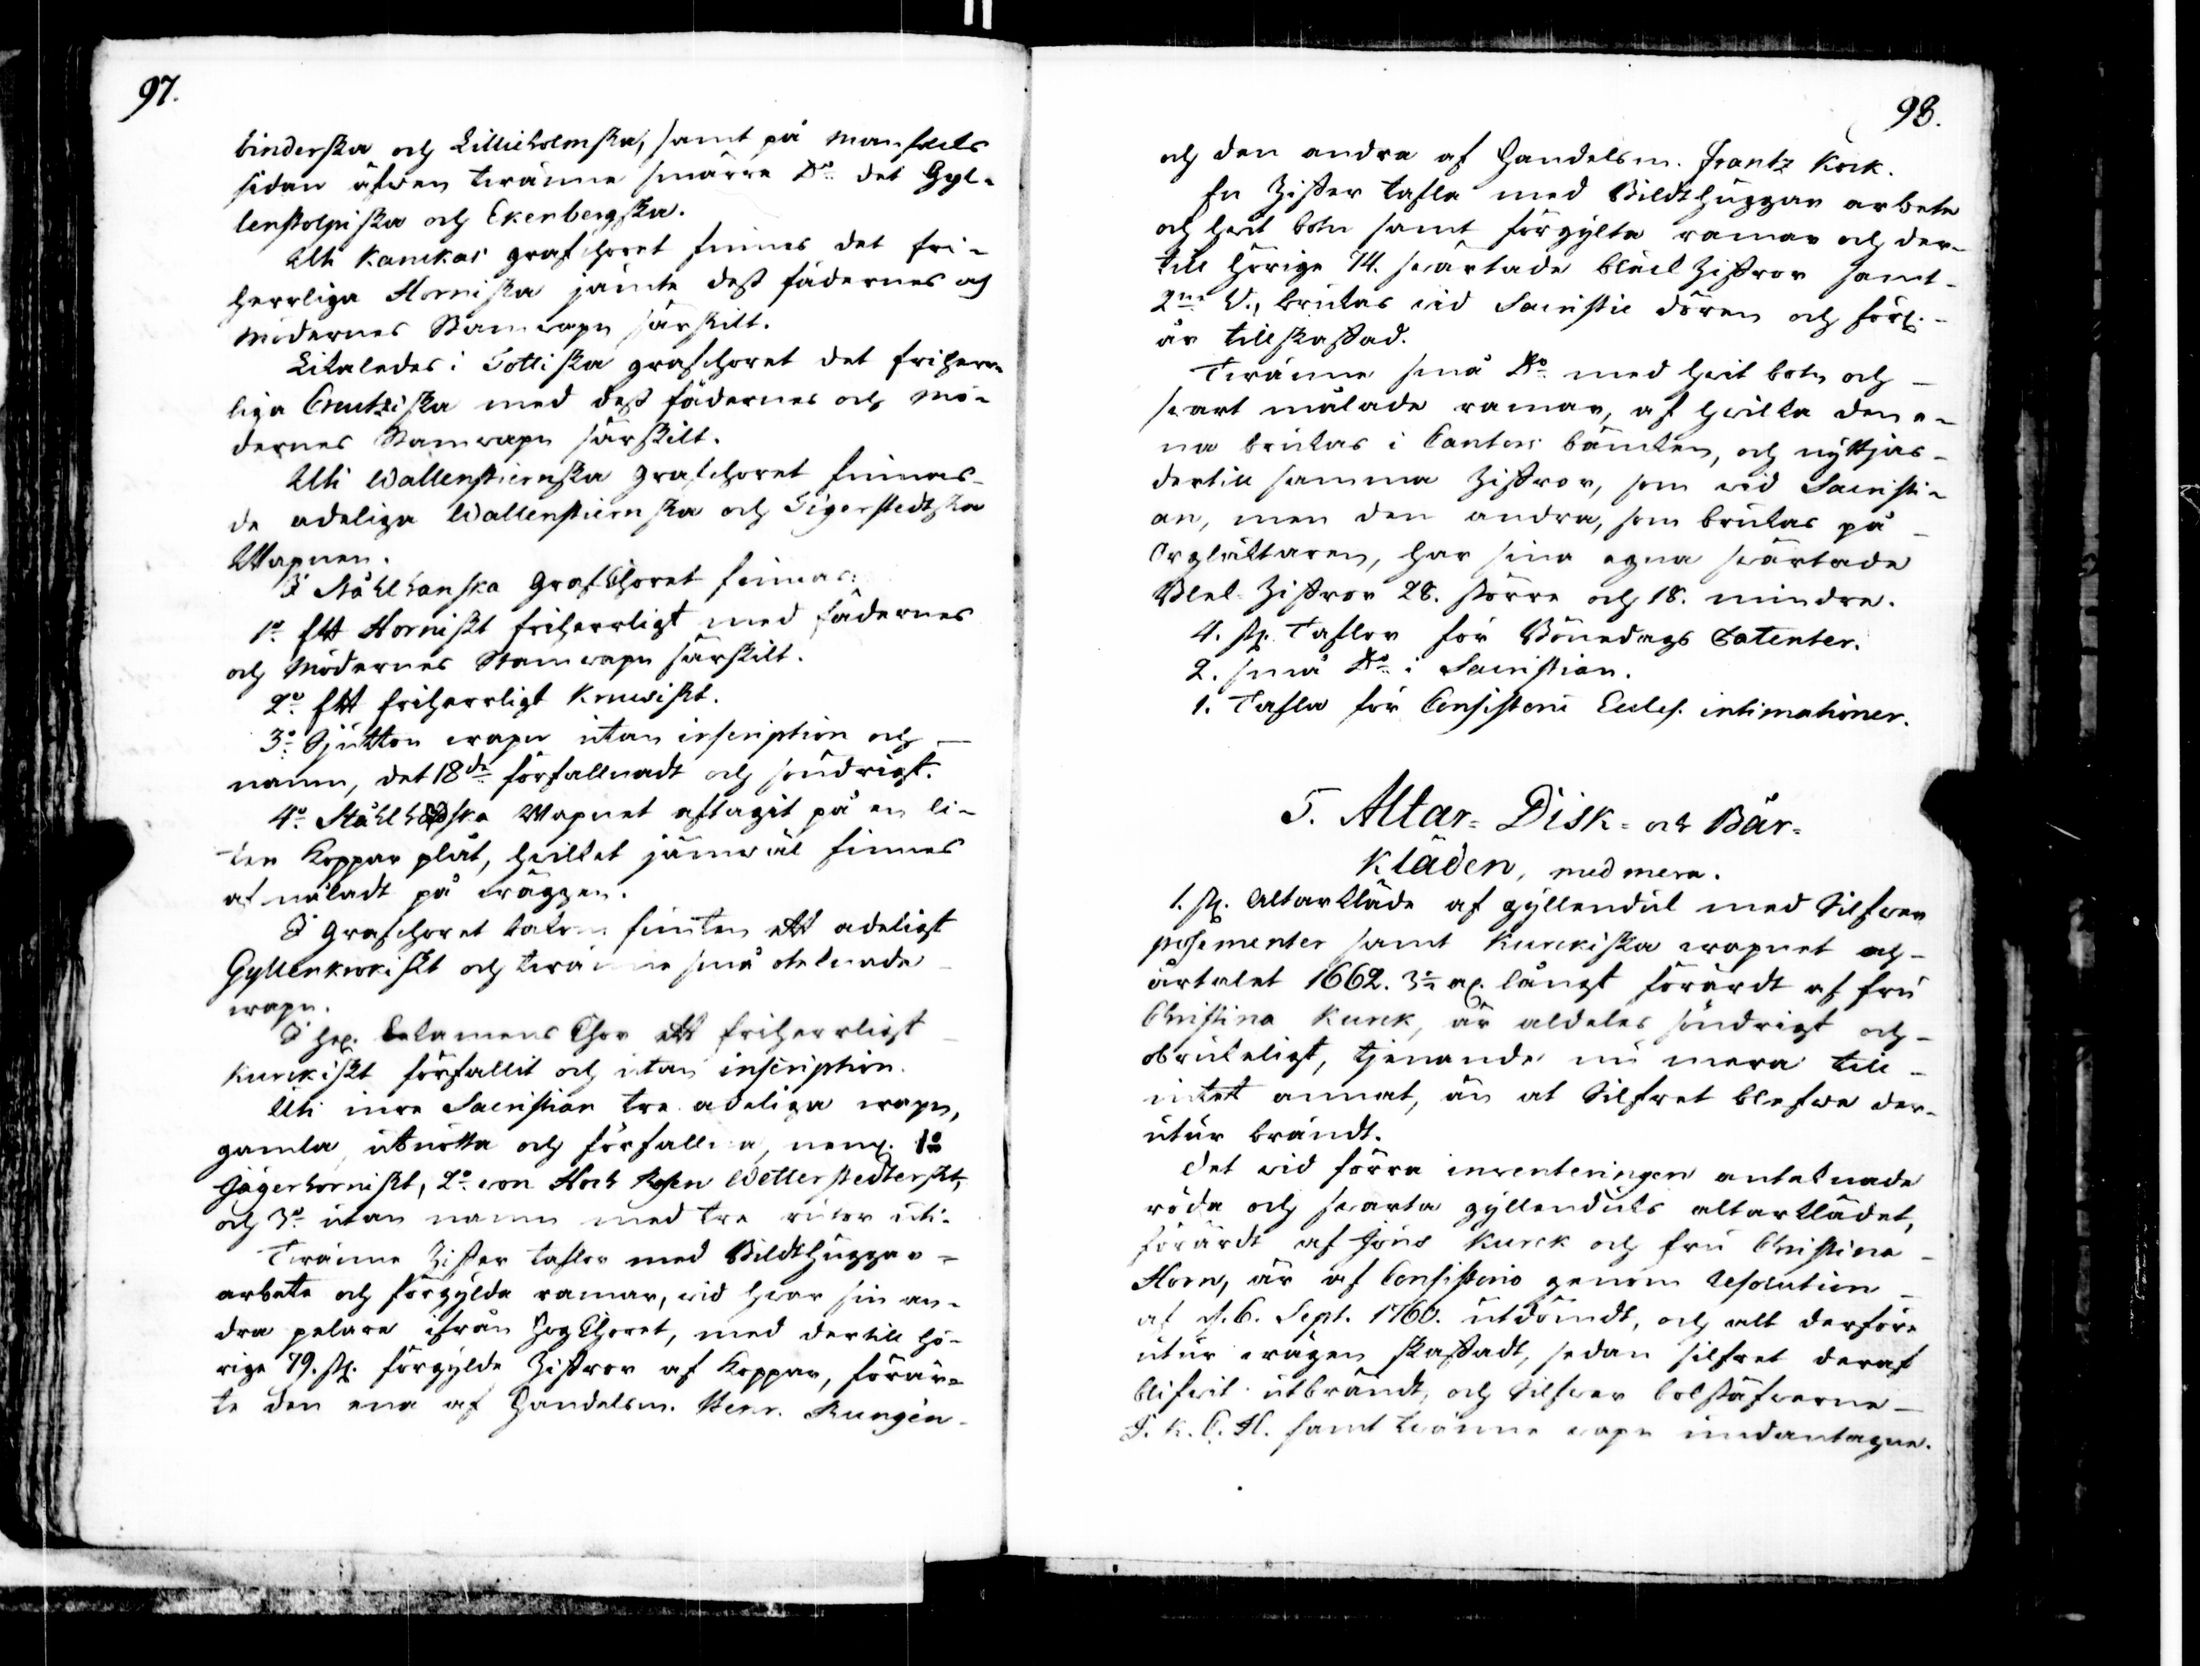 97.
binderska och Lillieholmska, samt på Manfolcks
sidan äfwen twänne smärre D:o det Gyl-
lenstolpiska och Ekenbergska.
Uti Kanckas grafchoret finnes det fri-
herrliga Horniska jämte dess fädernes och
Mödernes Stamwapn särskilt.
Likaledes i Tottiska grafchoret det friherr-
liga Creutziska med dess fädernes och Mö-
dernes Stamwapn särskilt.
Uti Wallenstiernska grafchoret finnas
de adeliga Wallenstiernska och Tigerstedtska
Wapnen.
I Stålhanska GrafChoret finnas:
1:o Ett Horniskt friherrligt med fädernes
och Mödernes Stamwapn särskilt.
2:o Ett friherrligt Kruusiskt.
3:o Sjutton wapn utan inscription och
namn, det 18:de förfallnadt och söndrigt.
4:o Stålhanska Wapnet aftagit på en li-
ten Koppar plåt, hwilket jämwäl finnes
afmåladt på wäggen.
I Grafchoret finnes ett adeligt
Gyllenkrokiskt och twänne små
wapn.
I Chor ett friherrligt
Kurckiskt förfallit och utan inscription.
Uti inre Sacristian tre adeliga wapn,
gamla, utnötta och förfallna, neml. 1:o
Jägerhorniskt, 2:o von Wetterstedterskt,
och 3:o utan namn med tre rutor uti.
Twänne Ziffer taflor med Bildthuggar-
arbete och förgylda ramar, wid hwar sin an-
dra pelare ifrån HögChoret, med dertill hö-
rige 79. st. förgylde Ziffror af Koppar, förär-
te den ena af Handelsm. Henr. Rungén
98.
och den andra af Handelsm. Frantz Kock.
En Ziffer tafla med Bildthuggar arbete
och hwit botn samt förgylta ramar och der-
till hörige 74. swärtade bläck Ziffror samt
2:ne V., brukas wid Sacristie dören och förl.
är tillskaffad.
Twänne små D:o med hwit botn och
swart målade ramar, af hwilka den e-
na brukas i Cantors bäncken, och nyttjas
dertill samma Ziffror, som wid Sacristi-
an, men den andra, som brukas på
Orgläktaren, har sina egna swärtade
Blek Ziffror 28. större och 18. mindre.
4. st. Taflor för Bönedags Patenter.
2. små D:o i Sacristian.
1. Tafla för Consistorii Eccles. intimationer.
5. Altar- Disk- och Bår-
Kläden, med mera.
1. st. Altarkläde af gyllenduk med Silfwer
possementer samt Kurckiska wapnet och
årtalet 1662. 3½ al. långt förärdt af fru
Christina Kurck, är aldeles söndrigt och
obrukeligt, tjenande nu mera till
intet annat, än at Silfret blefwe der-
utur brändt.
Det wid förra inventeringen antecknade
röda och swarta gyllenduks altarklädet,
förärdt af Jöns Kurck och fru Christina
Horn, är af Consistorio genom Resolution
af d. 6. Sept. 1760. utdömdt, och alt derföre
utur wägen skaffadt, sedan silfret deraf
blifwit utbrändt, och Silfwer bokstäfwerne
J. K. C. H. samt twänne wapn undantagne.